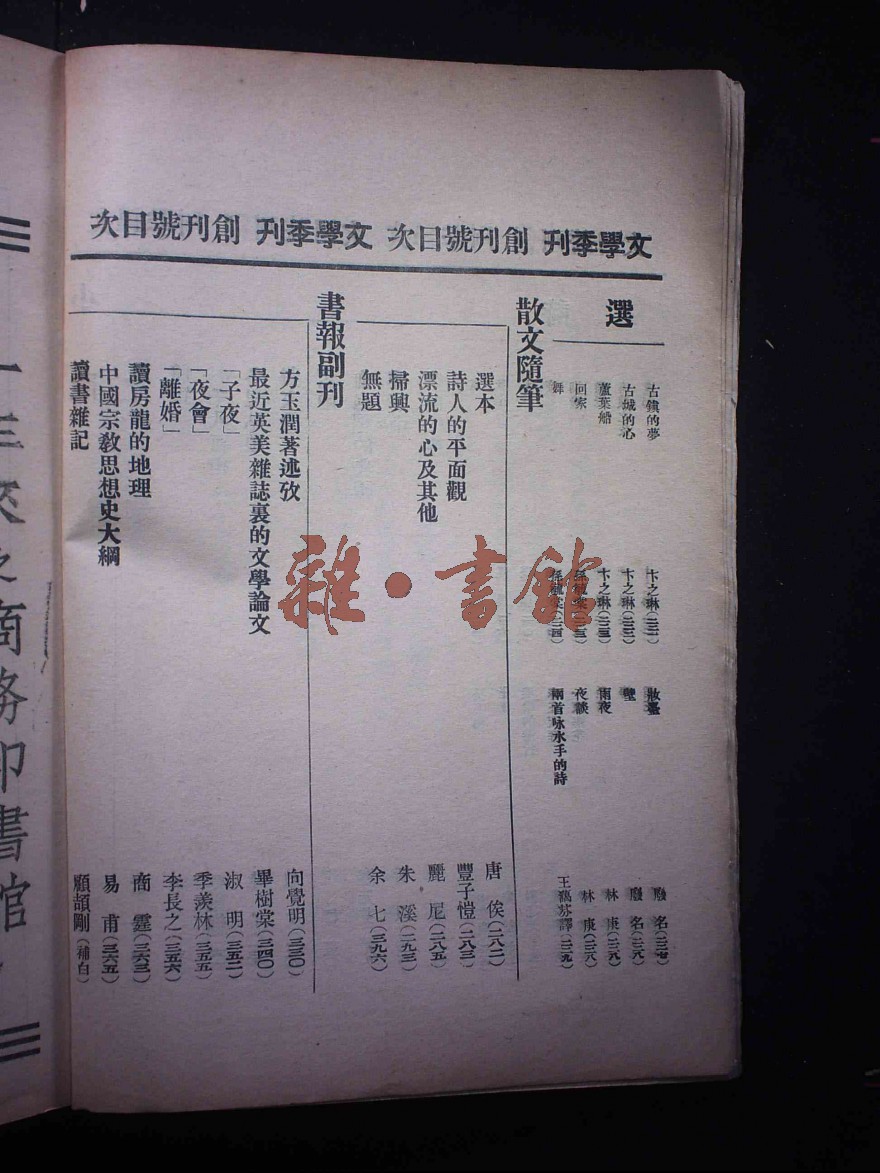 文學季刊 創刊號目次 文學季刊 創刊號目次
選
古鎮的夢 卞之琳(二三一) 妝臺 廢 名(二三七)
古城的心 卞之琳(二三二) 壁 林 庚(二三八)
蘆葉船 卞之琳(二三三) 雨夜 林 庚(二三八)
回家 孫毓棠(二三三) 夜談
舞 孫毓棠(二三四) 兩首咏水手的詩 譯(二三九)
散文隨筆
選本 唐 俟(二八二)
詩人的平面觀 豐子愷(二八三)
漂流的心及其他 麗 尼(二八五)
掃興 朱 溪(二九三)
無題 余 七(三九六)
書報副刊
方玉潤著述攷 向覺明(三三〇)
最近英美雜誌裏的文學論文 畢樹棠(三四〇)
「子夜」 淑 明(三五二)
「夜會」 季羨林(三五五)
「離婚」 李長之(三五六)
讀房龍的地理 商 霆(三六三)
中國宗教思想史大綱 易 甫(三六五)
讀書雜記 顧頡剛(補白)
雜·書館
之商務印書館